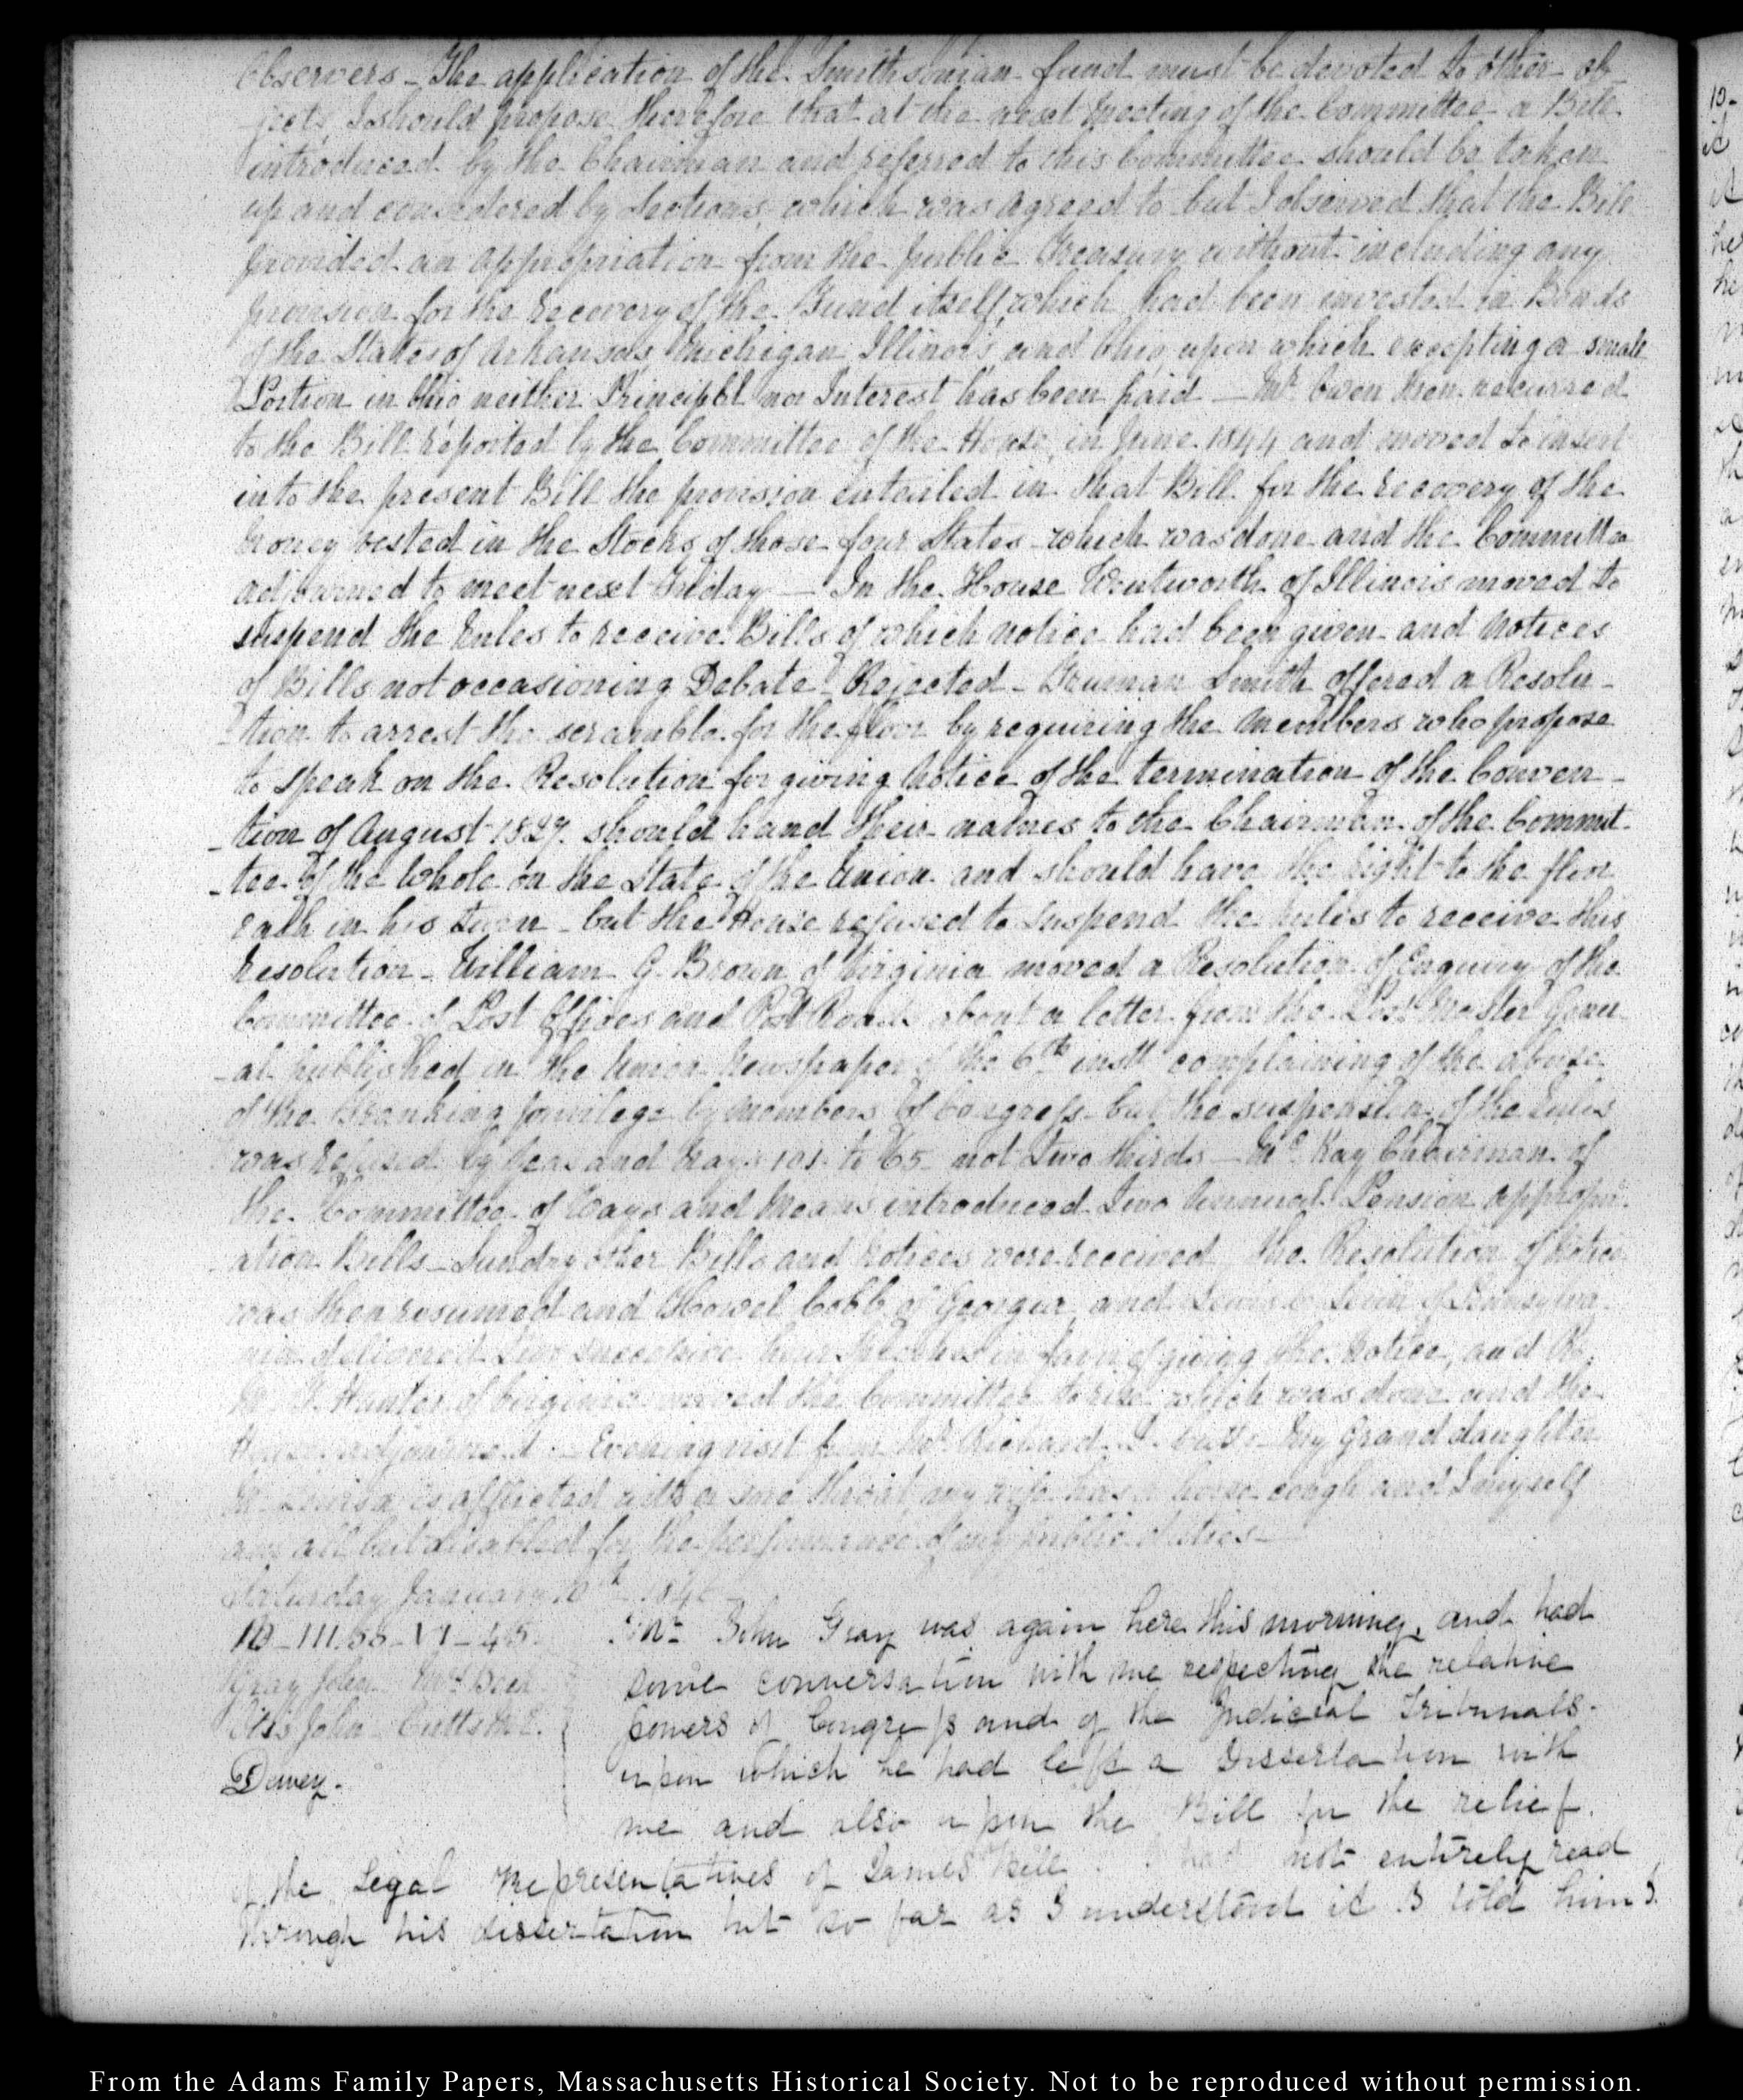 Observers – The application of the Smithsonian fund must be devoted to other ob-
-jects, I should propose therefore that at the next meeting of the Committee a Bill
introduced by the Chairman and referred to this Committee should be taken
up and considered by Sections, which was agreed to but I observed that the Bill
provided an appropriation from the public Treasury without including any
provision for the recovery of the Fund itself, which had been invested in Bonds
of the States of Arkansas, Michigan, Illinois, and Ohio, upon which excepting a small
Portion in Ohio neither Principal nor Interest has been paid — Mr Owen then recurred
to the Bill reported by the Committee of the House, in June 1844 and moved to insert
into the present Bill the provision entailed in that Bill for the recovery of the
money vested in the Stocks of those four States which was done and the Committee
adjourned to meet next Friday — In the House Wentworth of Illinois moved to
suspend the Rules to receive Bills of which notice had been given and notices
of Bills not occasioning Debate – Rejected – Truman Smith offered a Resolu-
-tion to arrest the scramble for the floor by requiring the members who propose
to speak on the Resolution for giving Notice of the termination of the Conven-
-tion of August 1827. should hand their names to the Chairman of the Commit-
-tee of the Whole on the State of the Union and should have the right to the floor
each in his turn – but the House refused to suspend the rules to receive this
Resolution – William G. Brown of Virginia moved a Resolution of Enquiry of the
Committee of Post Offices and Post Roads about a letter from the Post Master Gener-
-al published in the Union Newspaper of the 6th instt complaining of the abuse
of the Franking privilege by members of Congress but the suspension of the rules
was refused by Yeas and Nays 101 to 65 not two thirds — Mc Kay Chairman of
the Committee of Ways and Means introduced Two Annual Pension appropri-
-ation Bills – Sundry other Bills and notices were received, the Resolution of Notice
was then resumed and Howel Cobb of Georgia, and Lewis C Levin of Pennsylva-
nia delivered two successive hour Speeches in favor of giving the Notice, and R.
M. T. Hunter of Virginia moved the Committee to rise which was done and the
House adjourned. – Evening visit from Mr Richard D. Cutts – My Grand daughter
M. Louisa is afflicted with a sore throat my wife has a hoarse cough and I myself
am all but disabled for the performance of my public duties –
Saturday January 10th 1846
10 – III.55 – VI – 45. Mr John Gray was again here this morning, and had
Gray John some conversation with me respecting the relative
Otis John Cutts powers of Congress and of the Judicial Tribunals –
upon which he had left a Dissertation with
Dewey. me and also upon the Bill for the relief
of the Legal Representatives of James Bell. I had not entirely read
through his dissertation but so far as I understood it I told him I
From the Adams Family Papers, Massachusetts Historical Society. Not to be reproduced without permission.